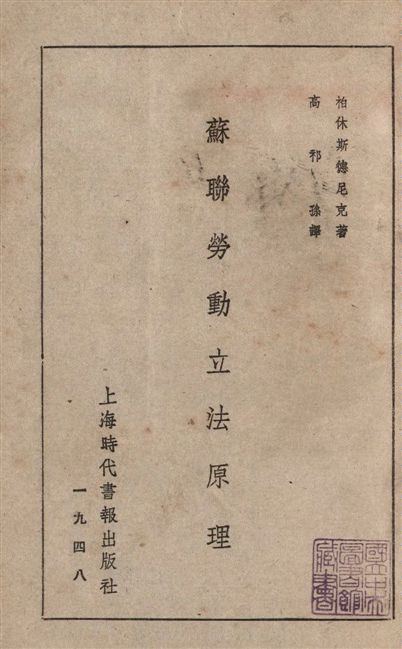 柏休斯德尼克著
高祁孫譯
蘇聯勞動立法原理
上海時代書報出版社
一九四八
國立中央
圖書館
藏書